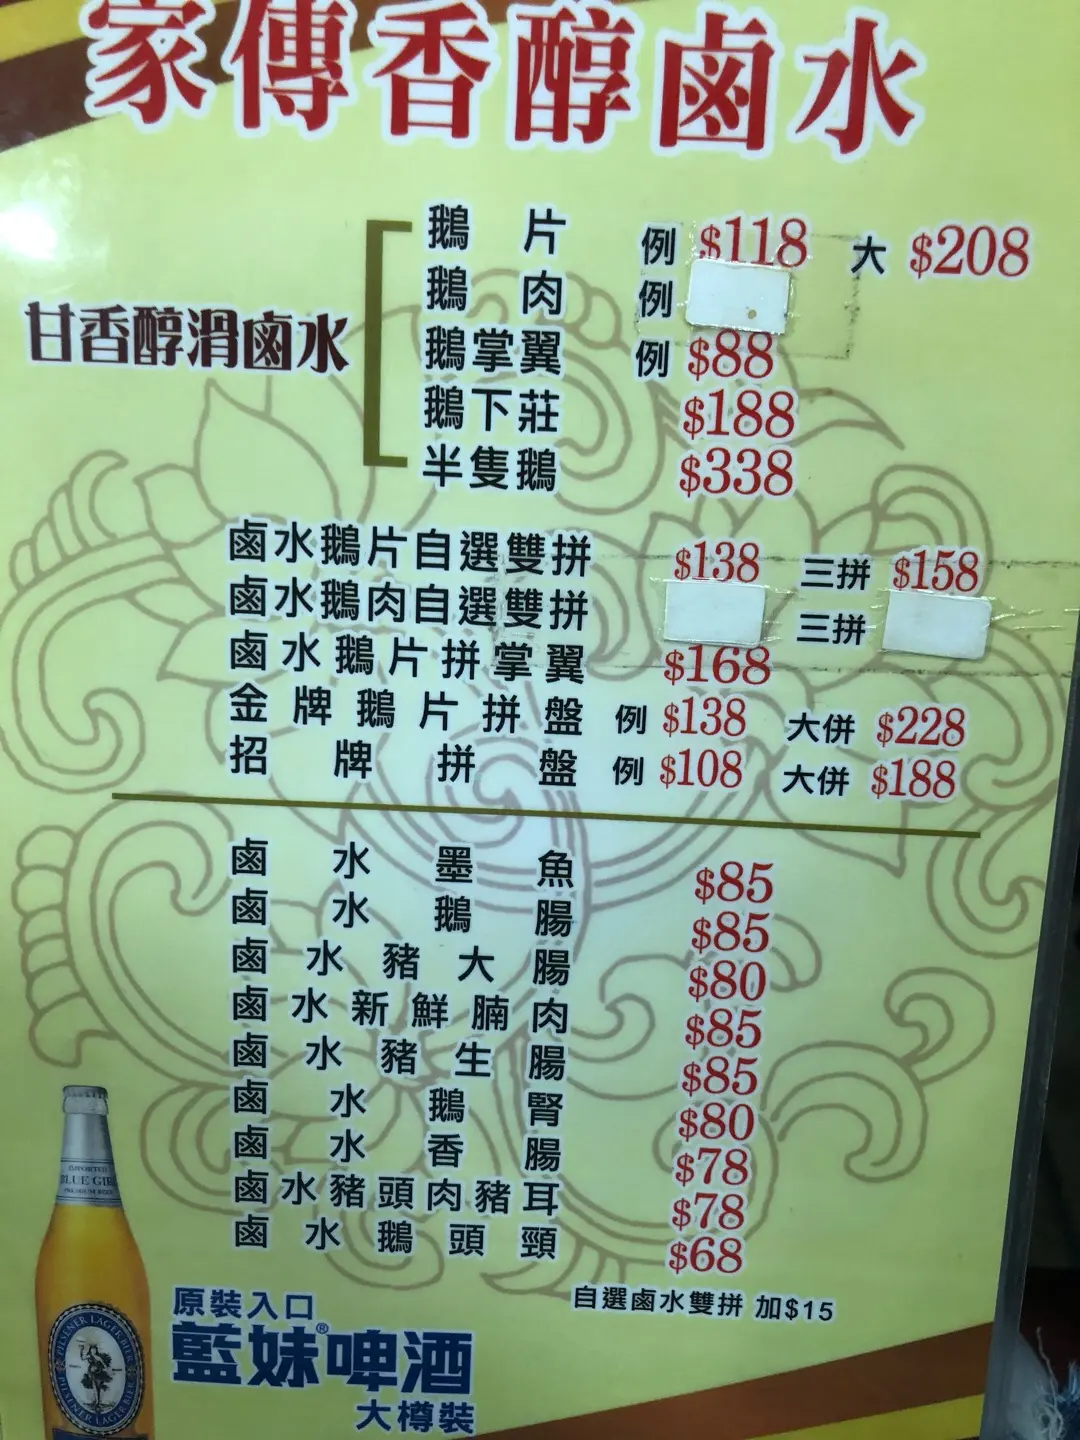 家傳香醇鹵水
甘香醇滑鹵水
鵝片 例 $118 大 $208
鵝肉 例
鵝掌翼 例 $88
鵝下莊 $188
半隻鵝 $338
鹵水鵝片自選雙拼 $138 三拼 $158
鹵水鵝肉自選雙拼 三拼
鹵水鵝片拼掌翼 $168
金牌鵝片拼盤 例 $138 大併 $228
招牌拼盤 例 $108 大併 $188
鹵水墨魚 $85
鹵水鵝腸 $85
鹵水豬大腸 $80
鹵水新鮮腩肉 $85
鹵水豬生腸 $85
鹵水鵝腎 $80
鹵水香腸 $78
鹵水豬頭肉豬耳 $78
鹵水鵝頭頸 $68
自選鹵水雙拼 加$15
IMPORTED
BLUE GIRL
PREMIUM BEER
PILSENER LAGER BEER
原裝入口
藍妹®啤酒
大樽裝